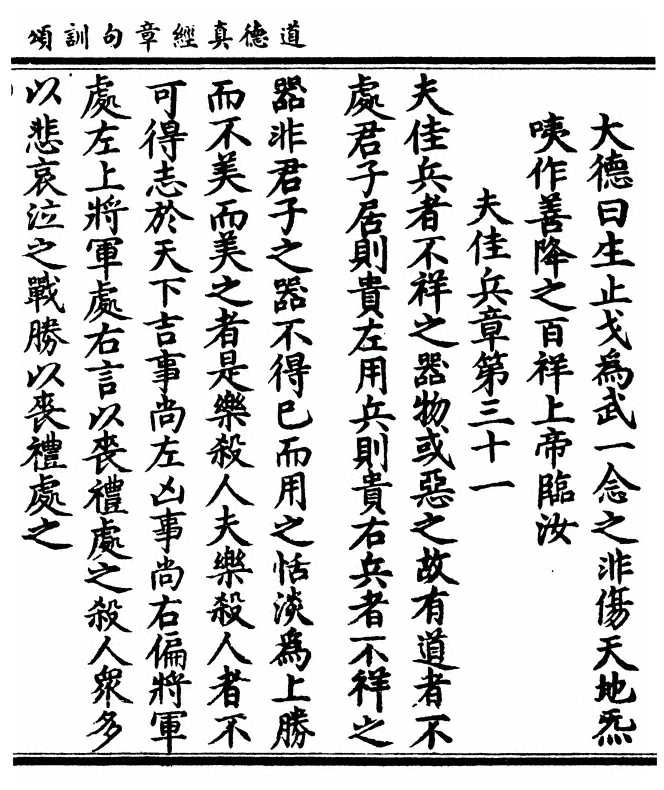 道德真經章句訓頌
大德曰生止戈爲武一念之非傷天地炁
咦作善降之百祥上帝臨汝
夫佳兵章第三十一
夫佳兵者不祥之器物或惡之故有道者不
處君子居則貴左用兵則貴右兵者不祥之
器非君子之器不得已而用之恬淡爲上勝
而不美而美之者是樂殺人夫樂殺人者不
可得志於天下吉事尚左凶事尚右偏將軍
處左上將軍處右言以喪禮處之殺人衆多
以悲哀泣之戰勝以喪禮處之